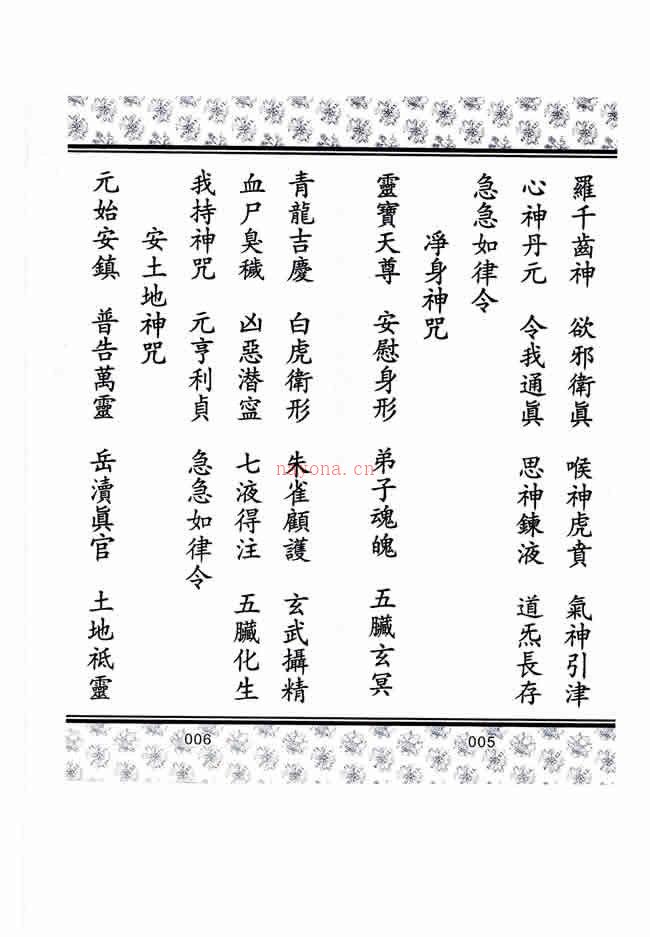 羅千齒神　欲邪衛眞　喉神虎賁　氣神引津
心神丹元　令我通眞　思神鍊液　道炁長存
急急如律令
凈身神咒
靈寶天尊　安慰身形　弟子魂魄　五臟玄冥
005
青龍吉慶　白虎衛形　朱雀顧護　玄武攝精
血尸臭穢　凶惡潜寍　七液得注　五臟化生
我持神咒　元亨利貞　急急如律令
安土地神咒
元始安鎮　普告萬靈　岳瀆眞官　土地祗靈
006
nayona.cn